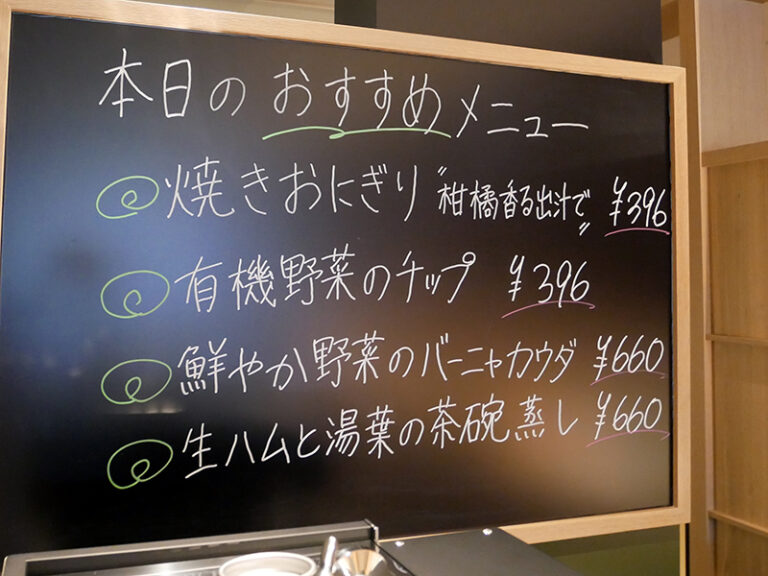 本日のおすすめメニュー
焼きおにぎり〝柑橘香る出汁で〟 ¥396
有機野菜のチップ ¥396
鮮やか野菜のバーニャカウダ ¥660
生ハムと湯葉の茶碗蒸し ¥660